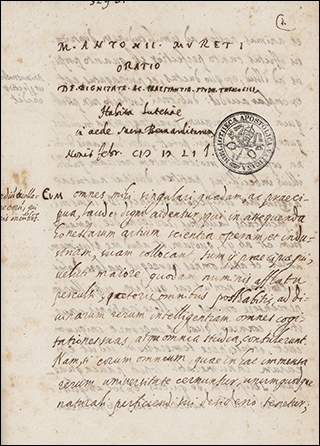 M. ANTONII MVRETI
ORATIO
DE DIGNITATE AC PRAESTANTIA
Habita Lutetiae
aede Sacra Bernarditarum
Nonis febr. CIƆ IƆ LII
BIBLIOTHECA APOSTOLICA VATICANA
Cum omnes mihi singulari quadam, ac praeci
pua laude digni videntur, qui in assequenda
honestarum artium scientia operam, et indu
striam, suam collocant: tum ij praecipue, qui
veluti maiore quodam numinis afflatu
perculsi, caeteris omnibus posthabitis, ad di
uinarum rerum intelligentiam omnes cogi
tationes suas, atque omnia studia, contulerunt.
Nam, si eorum omnium quae in hac immensa
rerum universitate cernuntur, unumquodque
naturali perficiendi sui desiderio tenetur,